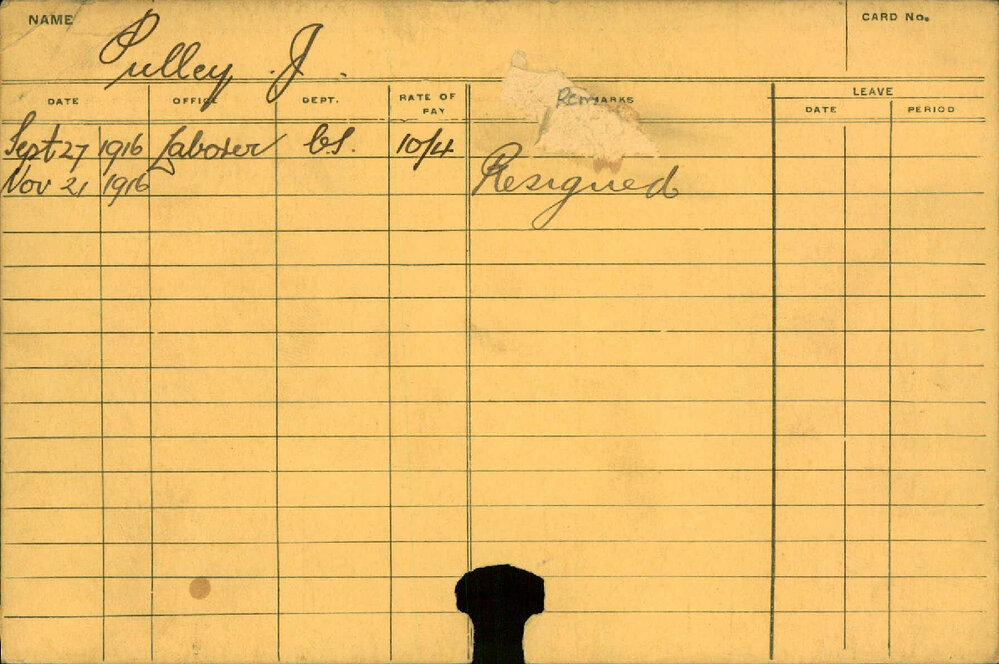 NAME Pulley J. CARD No.
DATE OFFICE DEPT. RATE OF PAY REMARKS LEAVE
DATE PERIOD
Sept 27 1916 Laborer 10/4
Nov 21 1916 Resigned